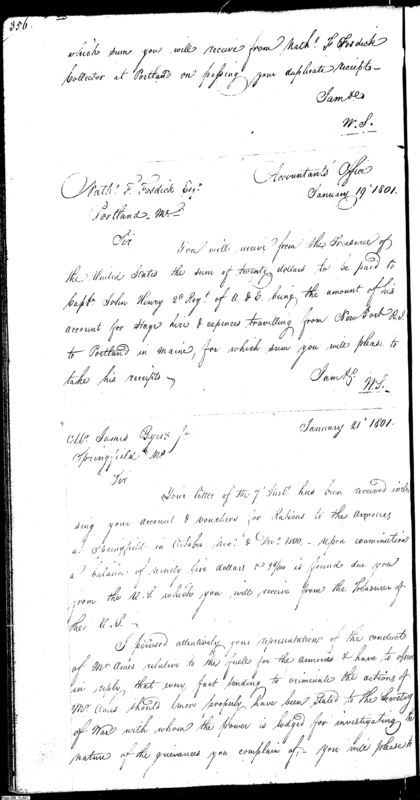 356.
which sum you will receive from Nathl. F. Fosdick
Collector at Portland on passing your duplicate receipts—
I am &c
W. S.
Accountants Office
January 19th 1801.
Nathl. F. Fosdick Esqr.
Portland Me.
Sir
You will receive from the Treasurer of
the United States the sum of twenty dollars to be paid to
Capt. John Henry 2d Regt. of A. & E. being the amount of his
account for Stage hire & expences travelling from New Port R. I.
to Portland in Maine, for which sum you will please to
take his receipts—
I am &c.
W. S.
January 21st 1801.
Mr. James Byers Jr.
Springfield Ms
Sir
Your letter of the 7th Inst. has been received inclo
sing your account & vouchers for Rations to the Armorers
at Springfield in October Novr. & Decr. 1800.— Upon examination
a balance of ninety five dollars & /100 is found due you
from the U. S. which you will receive from the Treasurer of
the U. S.—
I perused attentively your representation of the conduct
of Mr. Ames relative to the for the armories & have to observe
in reply, that every fact tending to criminate the actions of
Mr. Ames should more properly have been stated to the Secretary
of War with whom the power is lodged for investigating the
nature of the grievances you complain of,— you will please to